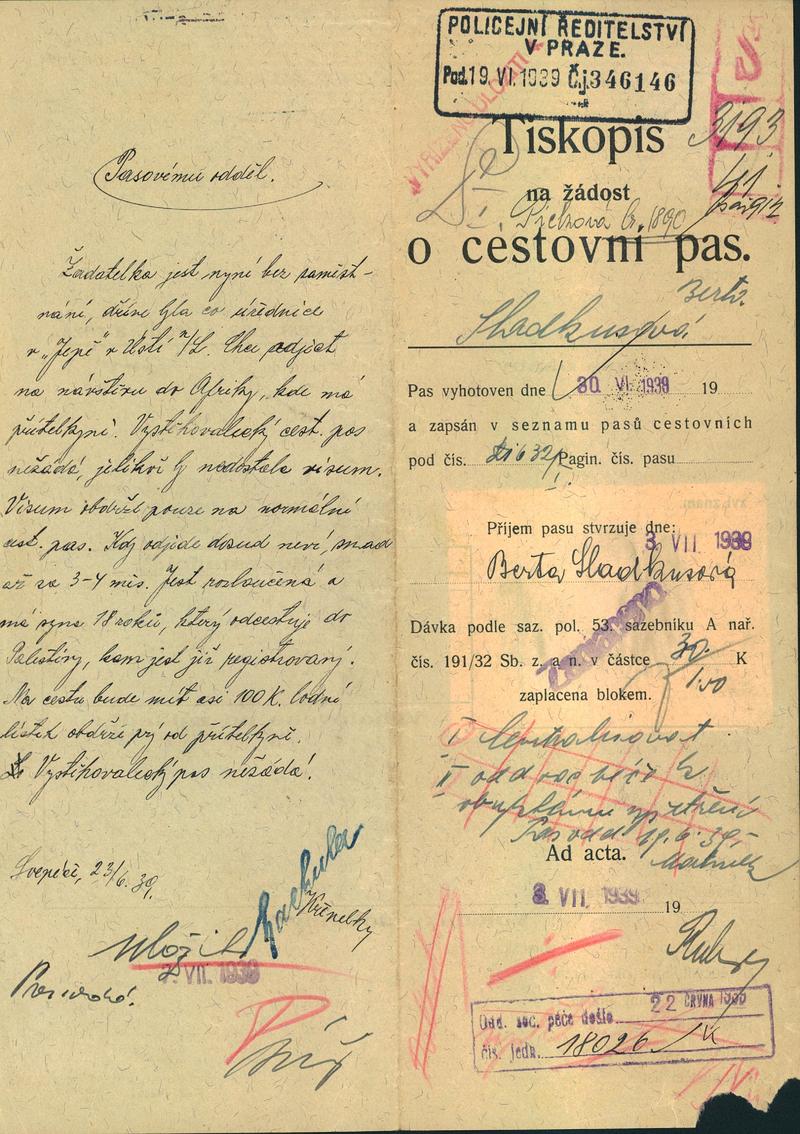 Pasovému odděl.
Žadatelka jest nyní bez zaměst-
nání, dříve byla co úřednice
v „Jepě" v Ústí n/L. Chce odjeti
na návštěvu do Afriky, kde má
přítelkyni. Vystěhovalecký cest. pas
nežádá, jelikož by nedostala visum.
Visum obdrží pouze na normální
cest. pas. Kdy odjede dosud neví, snad
až za 3-4 měs. Jest rozloučená a
má syna 18 roků, který odcestuje do
Palestiny, kam jest již registrovaný.
Na cestu bude míti asi 100 K. lodní
lístek obdrží prý od přítelkyně.
Vystěhovalecký pas nežádá.
23/6. 39.
Křinecký
Uložit
7. VII. 1939
POLICEJNÍ ŘEDITELSTVÍ
V PRAZE.
Pod. 19. VI. 1939 Čj. 346146
Tiskopis
3193
41
na žádost
1890
o cestovní pas.
Berta
Sladkusová
Pas vyhotoven dne 30. VI. 1939 19
a zapsán v seznamu pasů cestovních
pod čís. Pagin. čís. pasu
Příjem pasu stvrzuje dne:
3. VII. 1939
Berta Sladkusová
Dávka podle saz. pol. 53. sazebníku A nař.
čís. 191/32 Sb. z. a n. v částce 30.- K
1.50
zaplacena blokem.
I Neutralisovat
II odd soc péče k
19.6.39.
Ad acta.
3. VII. 1939 19
22 ČRVNA 1939
Odd. soc. péče došlo
čís. jedn. 18026